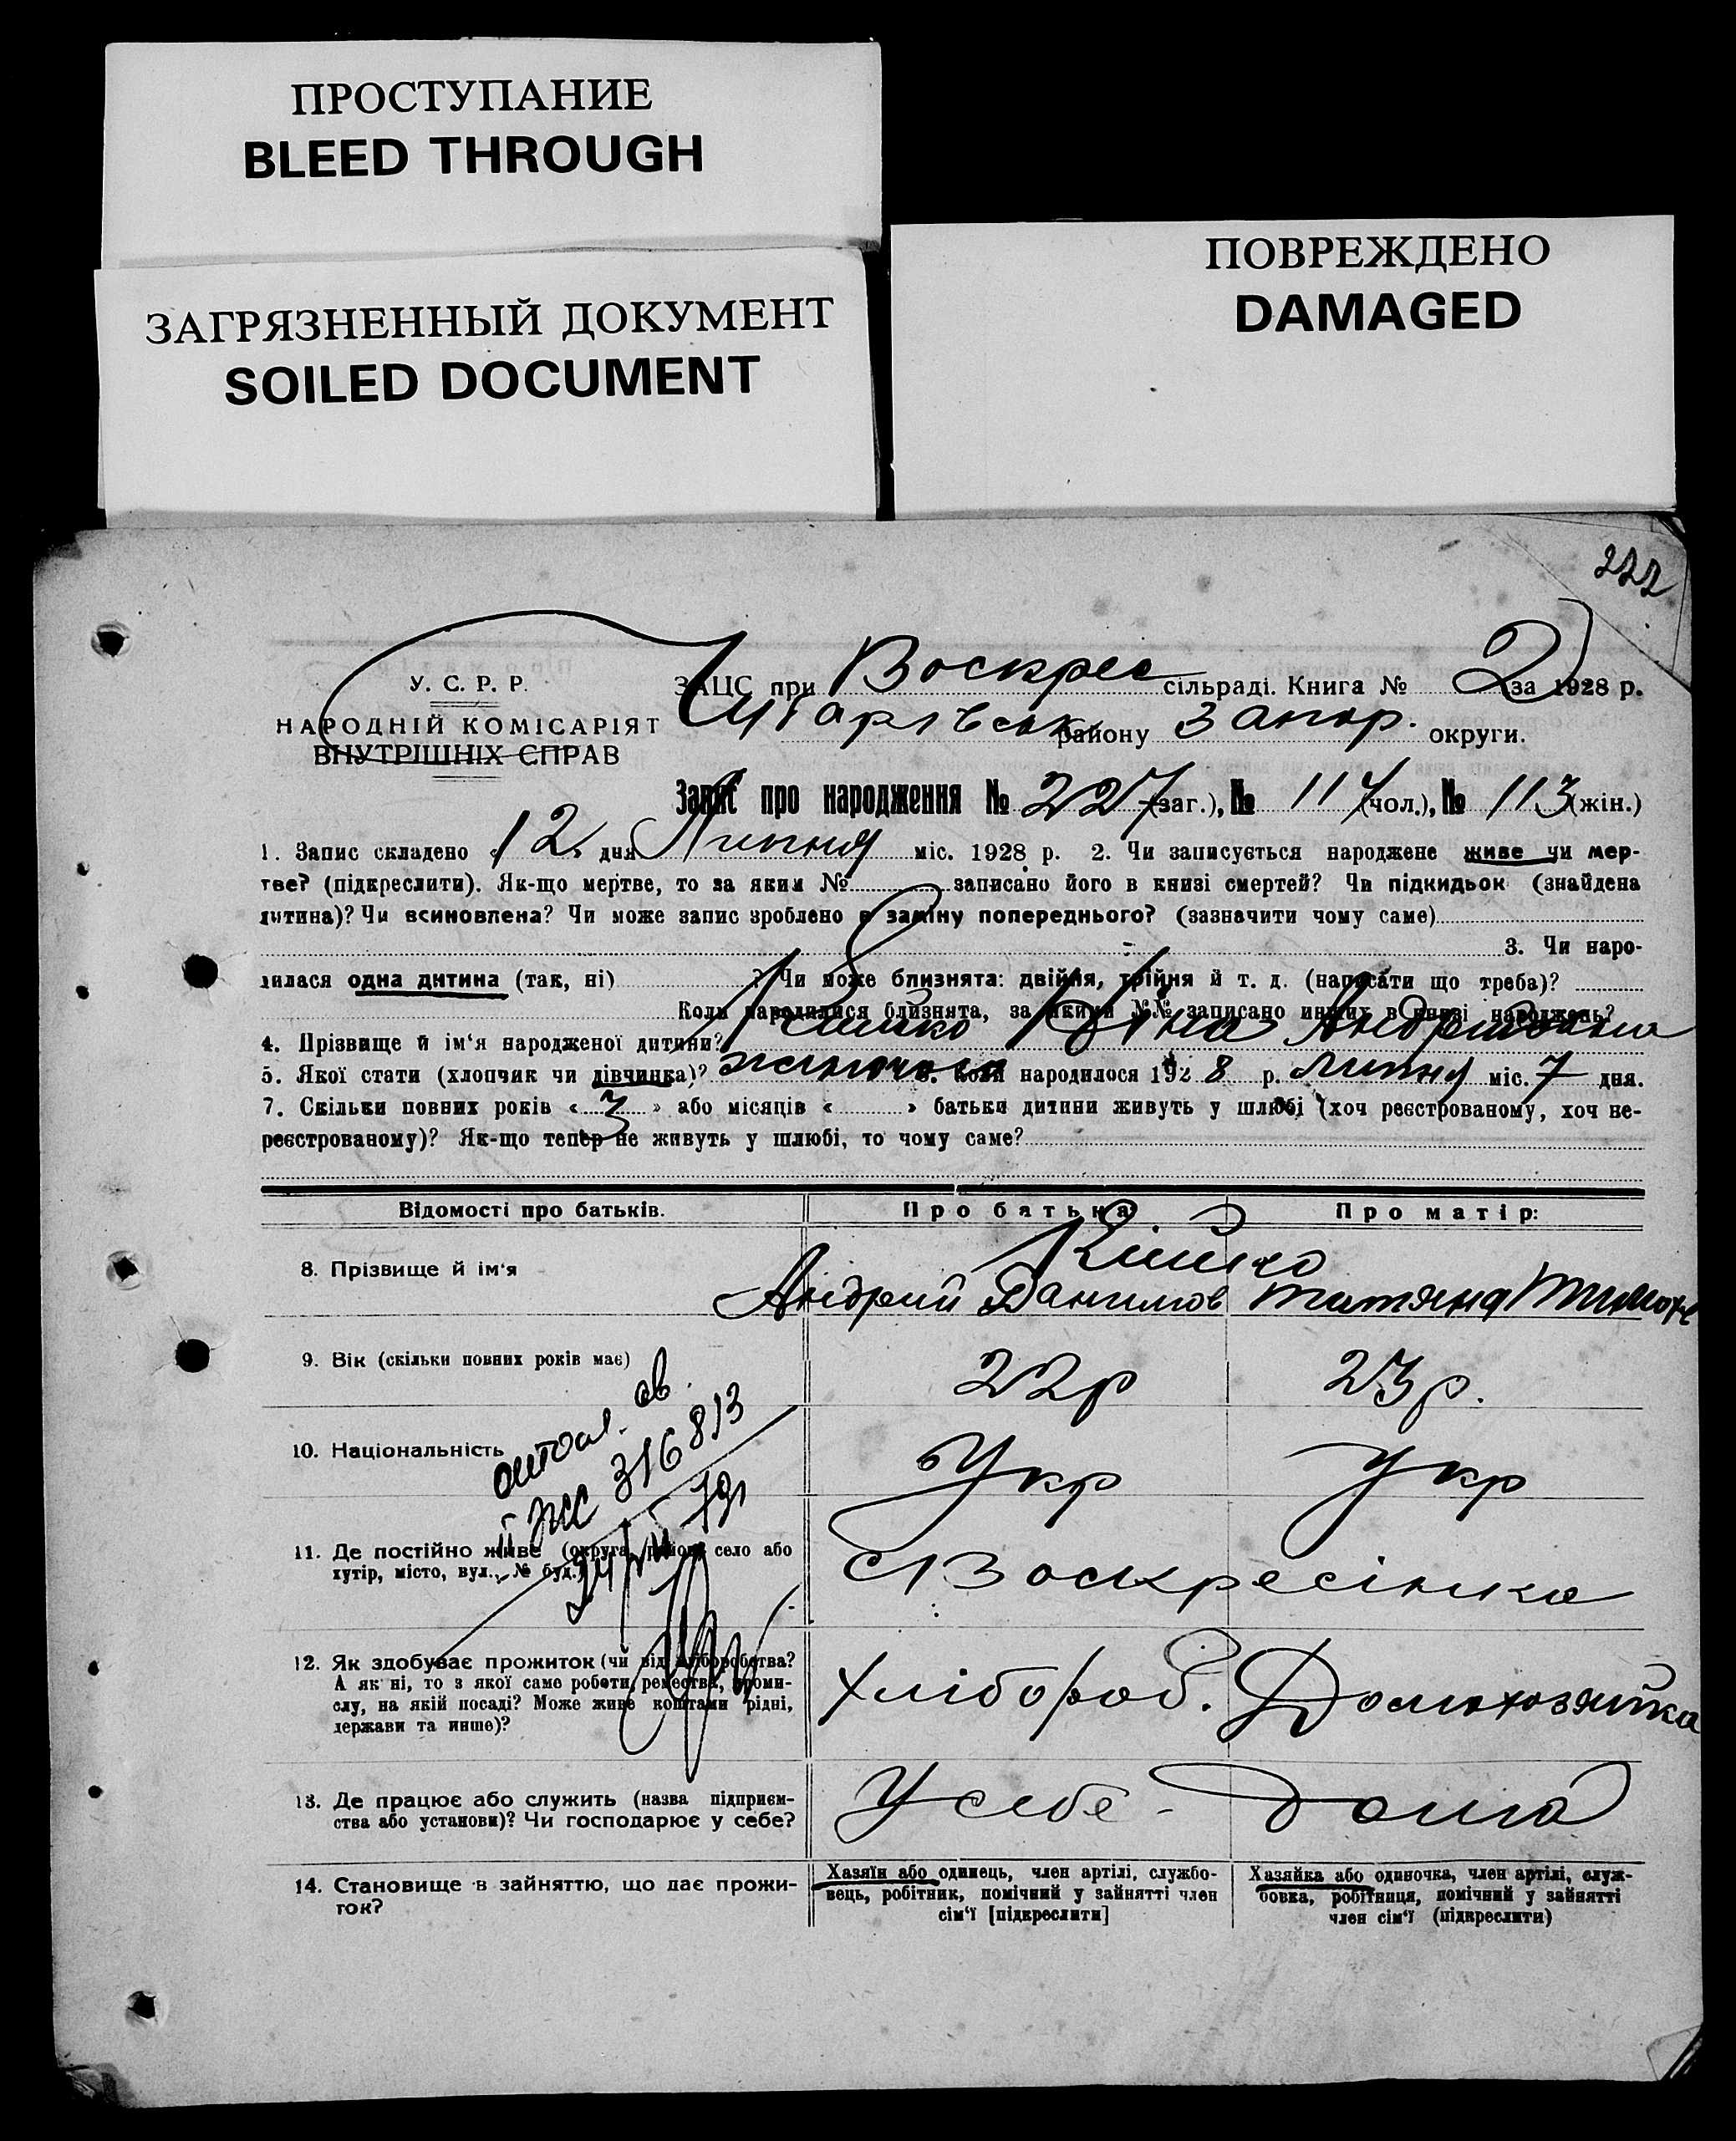 ПРОСТУПАНИЕ
BLEED THROUGH
ПОВРЕЖДЕНО
DAMAGED
ЗАГРЯЗНЕННЫЙ ДОКУМЕНТ
SOILED DOCUMENT
222
У. С. Р. Р.
НАРОДНІЙ КОМІСАРІЯТ
ВНУТРІШНІХ СПРАВ
ЗАЦС при Воскрес сільраді. Книга № 2 за 1928 р.
району Запор. округи.
Запис про народження № 227 (заг.), № 114 (чол.), № 113 (жін.)
1. Запис складено «12» дня Липня міс. 1928 р. 2. Чи записується народжене живе чи мер-
тве? (підкреслити). Як-що мертве, то за яким № записано його в книзі смертей? Чи підкидьок (знайдена
дитина)? Чи всиновлена? Чи може запис зроблено в заміну попереднього? (зазначити чому саме)
3. Чи наро-
дилася одна дитина (так, ні) ? Чи може близнята: двійня, трійня й т. д. (написати що треба)?
Коли народилися близнята, за якими №№ записано инших в книзі народжень?
4. Прізвище й ім'я народженої дитини? Андріївна
5. Якої стати (хлопчик чи дівчинка)? жіночої 6. Коли народилося 1928 р. липня міс. 7 дня.
7. Скільки повних років «3» або місяців « » батьки дитини живуть у шлюбі (хоч реєстрованому, хоч не-
реєстрованому)? Як-що тепер не живуть у шлюбі, то чому саме?
Відомості про батьків. Про батька Про матір:
8. Прізвище й ім'я
Андрий Данилов Татяна Тимофе
9. Вік (скільки повних років має) 22р 23р.
10. Національність Укр Укр
316813
11. Де постійно живе (округа, район, село або
хутір, місто, вул., № буд.) с Воскресінка
12. Як здобуває прожиток (чи від хліборобства?
А як ні, то з якої саме роботи, ремества, проми-
слу, на якій посаді? Може живе коштами рідні,
держави та инше)? Хлібороб. Домохозяйка
13. Де працює або служить (назва підприєм-
ства або установи)? Чи господарює у себе? У себе - дома
14. Становище в зайняттю, що дає прожи-
ток?
Хазяїн або одинець, член артілі, службо-
вець, робітник, помічний у зайнятті член
сім'ї [підкреслити]
Хазяйка або одиночка, член артілі, служ-
бовка, робітниця, помічний у зайнятті
член сім'ї (підкреслити)